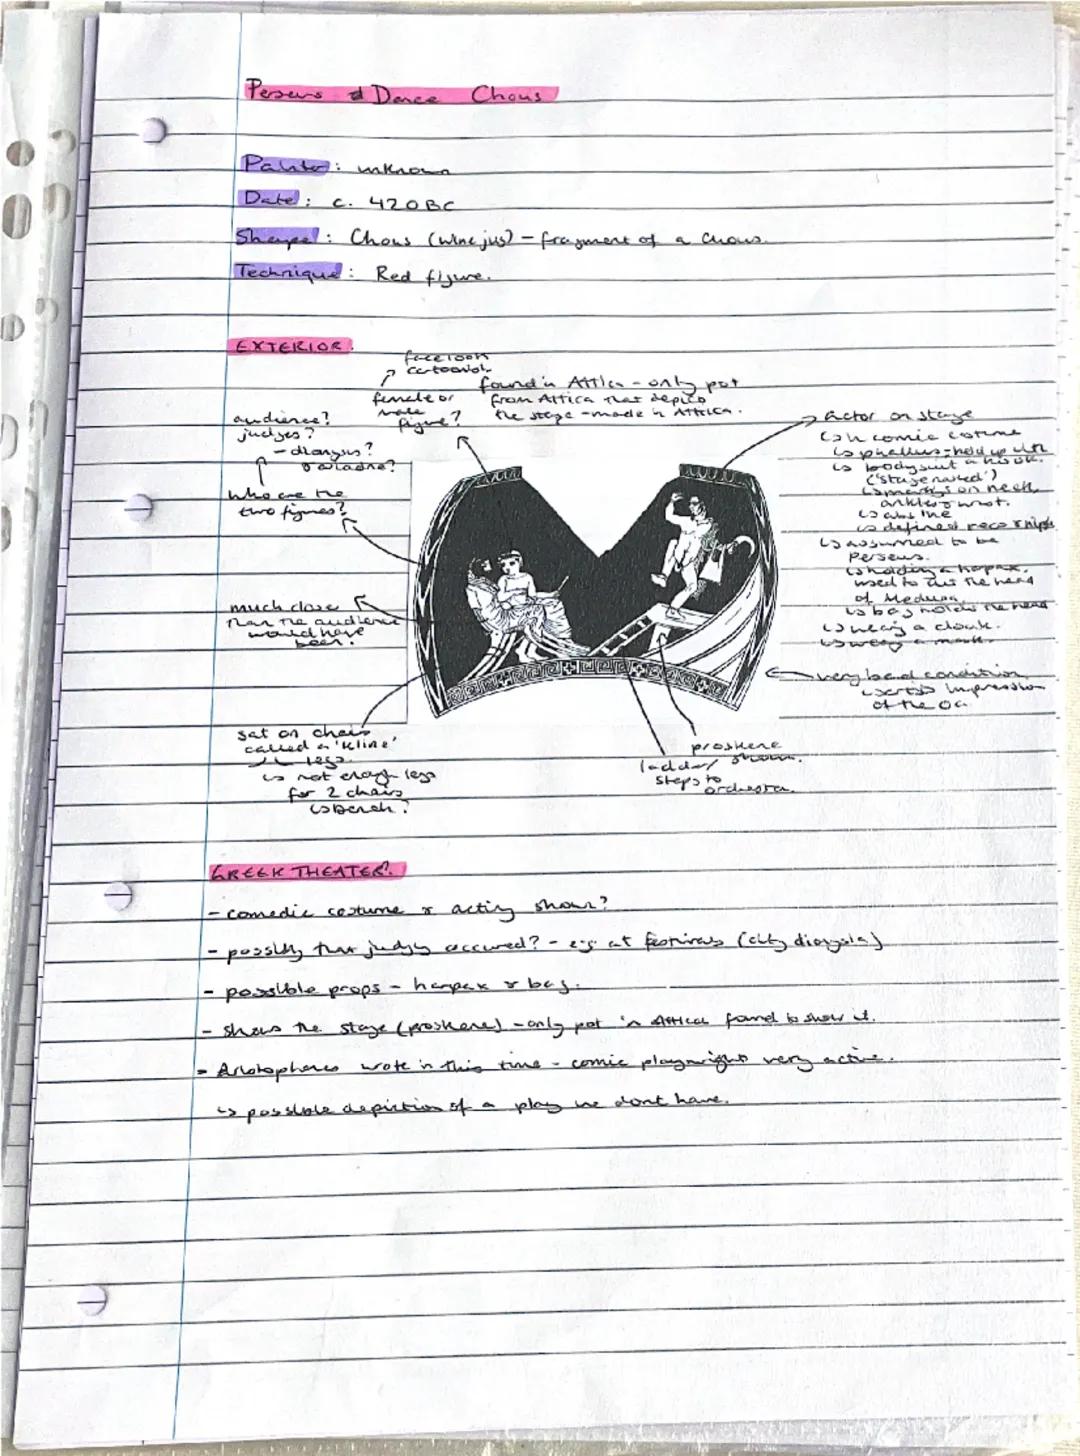 Perseus & Dance Chous
Painter: unknown
Date: c. 420BC
Shape: Chous (wine jug) - fragment of a chous.
Technique: Red figure.
EXTERIOR.
face look
cartoonish
female or
male
figure?
found in Attica - only pot
from Attica that depicts
the stage - made in Attica.
audience?
judges?
- dionysus?
& ariadne?
Who are the
two figures?
much close
than the audience
would have
been.
sat on chairs
called a 'kline'
legs.
↳ not enough legs
for 2 chairs
↳ bench?
Actor on stage
↳ in comic costume
↳ phallus - held up with
↳ bodysuit a hook.
('stage naked')
↳ markings on neck,
ankle & wrist.
↳ abs line
↳ defined pecs & nips
↳ assumed to be
Perseus.
↳ holding a harpax,
used to cut the head
of Medusa.
↳ bag holds the head
↳ wearing a cloak.
↳ wearing a mask.
very bad condition
↳ artists impression
of the oc
proskene
shown.
ladder/
steps to
orchestra.
GREEK THEATER?
- comedic costume & acting shown?
- possibly that judging occured? - e.g. at festivals (city dionysia)
- possible props - harpax & bag.
- shows the stage (proskene) - only pot in Attica found to show it.
- Aristophanes wrote in this time - comic playwrights very active.
↳ possible depiction of a play we dont have.